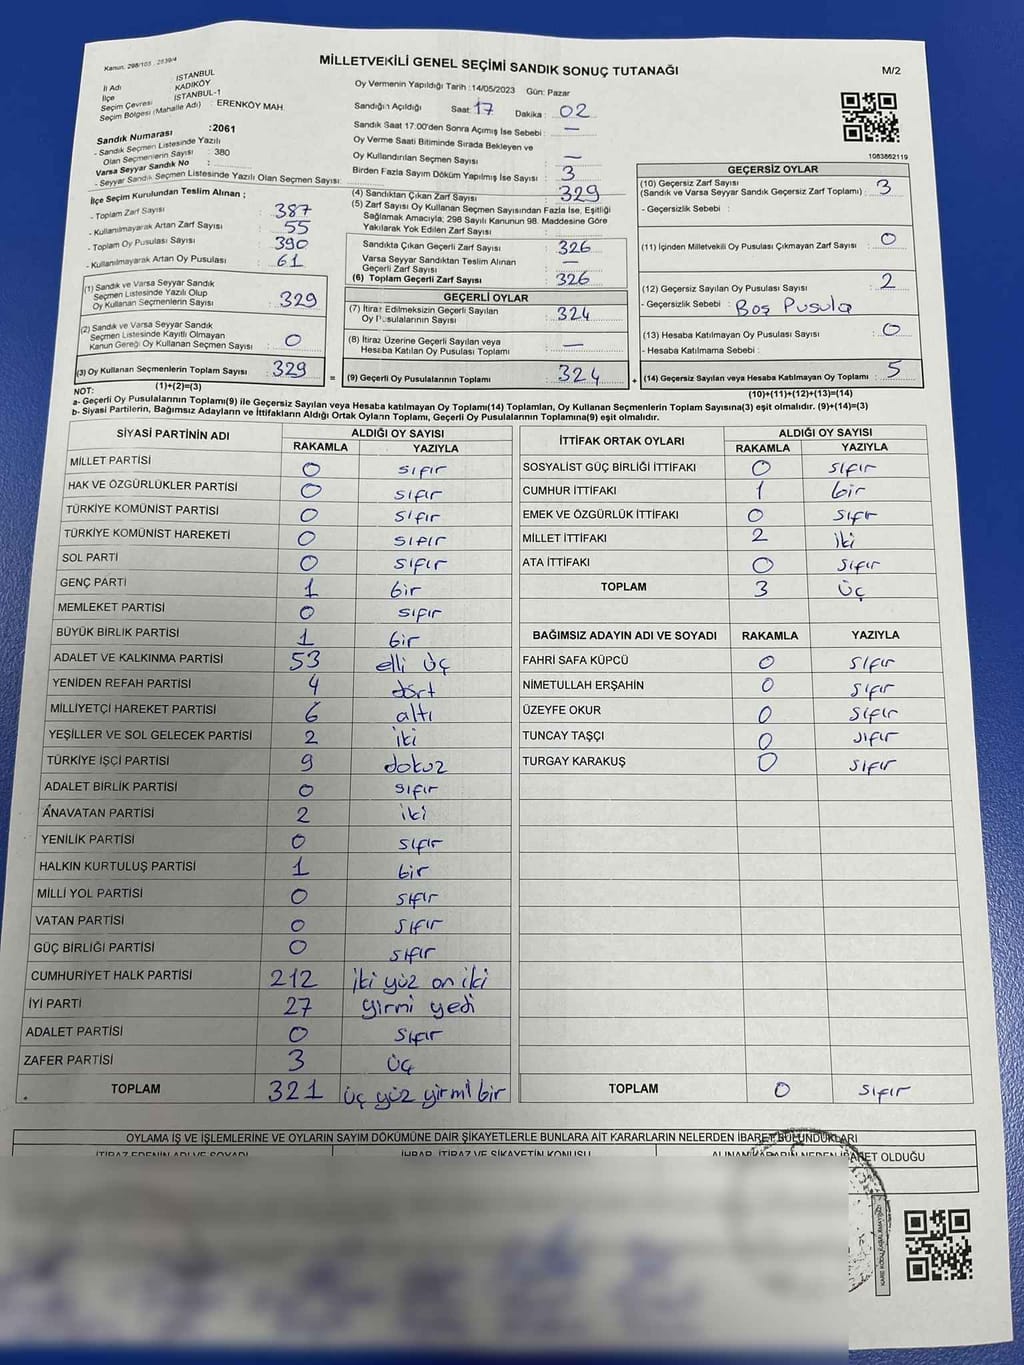 Kanun, 298/105 , 2839/4
MİLLETVEKİLİ GENEL SEÇİMİ SANDIK SONUÇ TUTANAĞI
M/2
İl Adı İSTANBUL
İlçe KADIKÖY
Seçim Çevresi İSTANBUL-1
Seçim Bölgesi (Mahalle Adı) : ERENKÖY MAH.
Sandık Numarası :2061
- Sandık Seçmen Listesinde Yazılı
Olan Seçmenlerin Sayısı : 380
Varsa Seyyar Sandık No :
- Seyyar Sandık Seçmen Listesinde Yazılı Olan Seçmen Sayısı:
İlçe Seçim Kurulundan Teslim Alınan ;
- Toplam Zarf Sayısı : 387
- Kullanılmayarak Artan Zarf Sayısı : 55
- Toplam Oy Pusulası Sayısı : 390
- Kullanılmayarak Artan Oy Pusulası : 61
(1) Sandık ve Varsa Seyyar Sandık
Seçmen Listesinde Yazılı Olup
Oy Kullanan Seçmenlerin Sayısı : 329
(2) Sandık ve Varsa Seyyar Sandık
Seçmen Listesinde Kayıtlı Olmayan
Kanun Gereği Oy Kullanan Seçmen Sayısı : 0
(3) Oy Kullanan Seçmenlerin Toplam Sayısı : 329
(1)+(2)=(3)
Oy Vermenin Yapıldığı Tarih :14/05/2023 Gün: Pazar
Sandığın Açıldığı Saat: 17 Dakika : 02
Sandık Saat 17:00'den Sonra Açımış İse Sebebi : —
Oy Verme Saati Bitiminde Sırada Bekleyen ve
Oy Kullandırılan Seçmen Sayısı : —
Birden Fazla Sayım Döküm Yapılmış İse Sayısı : 3
(4) Sandıktan Çıkan Zarf Sayısı : 329
(5) Zarf Sayısı Oy Kullanan Seçmen Sayısından Fazla İse, Eşitliği
Sağlamak Amacıyla; 298 Sayılı Kanunun 98. Maddesine Göre
Yakılarak Yok Edilen Zarf Sayısı :
Sandıkta Çıkan Geçerli Zarf Sayısı : 326
Varsa Seyyar Sandıktan Teslim Alınan
Geçerli Zarf Sayısı : —
(6) Toplam Geçerli Zarf Sayısı : 326
GEÇERLİ OYLAR
(7) İtiraz Edilmeksizin Geçerli Sayılan
Oy Pusulalarının Sayısı : 324
(8) İtiraz Üzerine Geçerli Sayılan veya
Hesaba Katılan Oy Pusulası Toplamı : —
= (9) Geçerli Oy Pusulalarının Toplamı : 324
1083862119
GEÇERSİZ OYLAR
(10) Geçersiz Zarf Sayısı
(Sandık ve Varsa Seyyar Sandık Geçersiz Zarf Toplamı) : 3
- Geçersizlik Sebebi :
(11) İçinden Milletvekili Oy Pusulası Çıkmayan Zarf Sayısı : 0
(12) Geçersiz Sayılan Oy Pusulası Sayısı : 2
- Geçersizlik Sebebi : Boş Pusula
(13) Hesaba Katılmayan Oy Pusulası Sayısı : 0
- Hesaba Katılmama Sebebi :
+ (14) Geçersiz Sayılan veya Hesaba Katılmayan Oy Toplamı : 5
(10)+(11)+(12)+(13)=(14)
NOT:
a- Geçerli Oy Pusulalarının Toplamı(9) ile Geçersiz Sayılan veya Hesaba katılmayan Oy Toplamı(14) Toplamları, Oy Kullanan Seçmenlerin Toplam Sayısına(3) eşit olmalıdır. (9)+(14)=(3)
b- Siyasi Partilerin, Bağımsız Adayların ve İttifakların Aldığı Ortak Oyların Toplamı, Geçerli Oy Pusulalarının Toplamına(9) eşit olmalıdır.
SİYASİ PARTİNİN ADI ALDIĞI OY SAYISI
RAKAMLA YAZIYLA
MİLLET PARTİSİ 0 sıfır
HAK VE ÖZGÜRLÜKLER PARTİSİ 0 sıfır
TÜRKİYE KOMÜNİST PARTİSİ 0 sıfır
TÜRKİYE KOMÜNİST HAREKETİ 0 sıfır
SOL PARTİ 0 sıfır
GENÇ PARTİ 1 bir
MEMLEKET PARTİSİ 0 sıfır
BÜYÜK BİRLİK PARTİSİ 1 bir
ADALET VE KALKINMA PARTİSİ 53 elli üç
YENİDEN REFAH PARTİSİ 4 dört
MİLLİYETÇİ HAREKET PARTİSİ 6 altı
YEŞİLLER VE SOL GELECEK PARTİSİ 2 iki
TÜRKİYE İŞÇİ PARTİSİ 9 dokuz
ADALET BİRLİK PARTİSİ 0 sıfır
ANAVATAN PARTİSİ 2 iki
YENİLİK PARTİSİ 0 sıfır
HALKIN KURTULUŞ PARTİSİ 1 bir
MİLLİ YOL PARTİSİ 0 sıfır
VATAN PARTİSİ 0 sıfır
GÜÇ BİRLİĞİ PARTİSİ 0 sıfır
CUMHURİYET HALK PARTİSİ 212 iki yüz on iki
İYİ PARTİ 27 yirmi yedi
ADALET PARTİSİ 0 sıfır
ZAFER PARTİSİ 3 üç
TOPLAM 321 üç yüz yirmi bir
İTTİFAK ORTAK OYLARI ALDIĞI OY SAYISI
RAKAMLA YAZIYLA
SOSYALİST GÜÇ BİRLİĞİ İTTİFAKI 0 sıfır
CUMHUR İTTİFAKI 1 bir
EMEK VE ÖZGÜRLÜK İTTİFAKI 0 sıfır
MİLLET İTTİFAKI 2 iki
ATA İTTİFAKI 0 sıfır
TOPLAM 3 üç
BAĞIMSIZ ADAYIN ADI VE SOYADI RAKAMLA YAZIYLA
FAHRİ SAFA KÜPCÜ 0 sıfır
NİMETULLAH ERŞAHİN 0 sıfır
ÜZEYFE OKUR 0 sıfır
TUNCAY TAŞÇI 0 sıfır
TURGAY KARAKUŞ 0 sıfır
TOPLAM 0 sıfır
OYLAMA İŞ VE İŞLEMLERİNE VE OYLARIN SAYIM DÖKÜMÜNE DAİR ŞİKAYETLERLE BUNLARA AİT KARARLARIN NELERDEN İBARET BULUNDUKLARI
İTİRAZ EDENİN ADI VE SOYADI İHBAR, İTİRAZ VE ŞİKAYETİN KONUSU ALINAN KARARIN NEDEN İBARET OLDUĞU